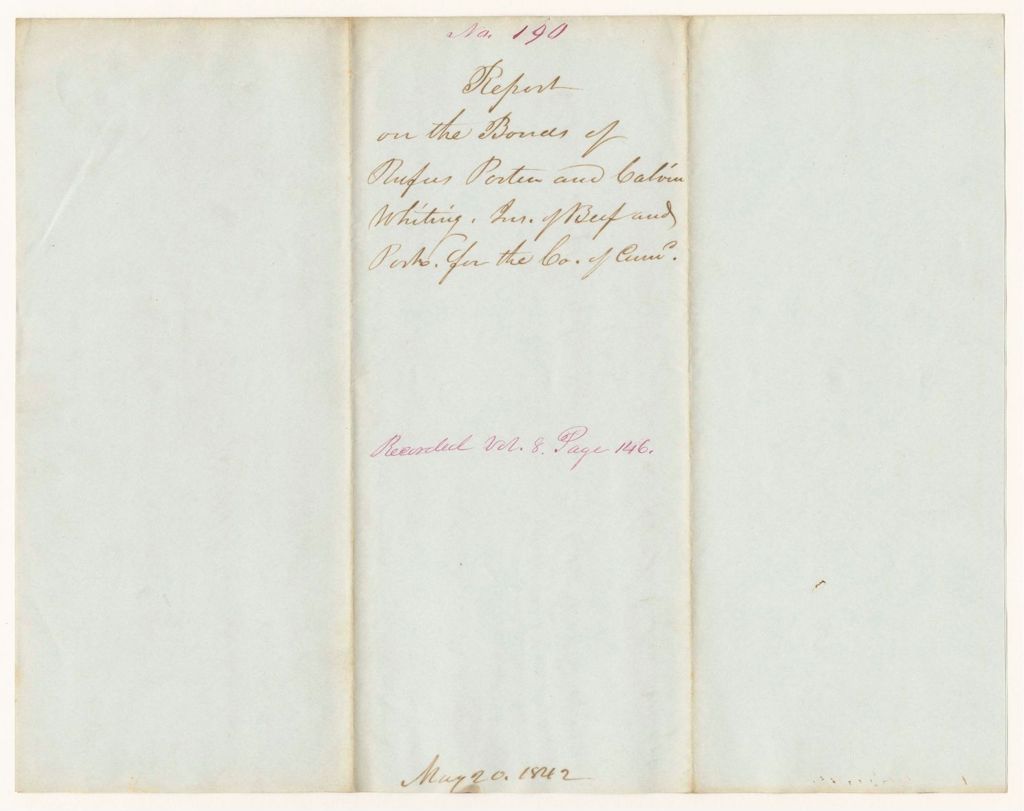 No. 190
Report
on the Bonds of
Rufus Porter and Calvin
Whiting. Ins. of Beef and
Pork. for the Co. of Cumd.
Recorded Vol. 8. Page 146.
May 20. 1842